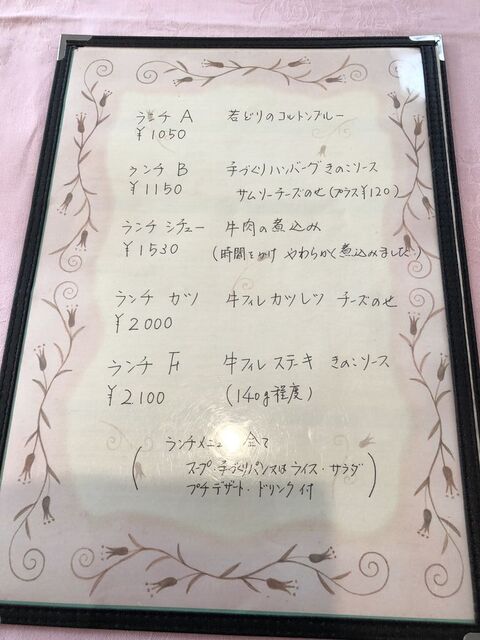 ランチ A 若どりのコルドンブルー
¥1050
ランチ B 手づくりハンバーグ きのこソース
¥1150 サムソーチーズのせ (プラス¥120)
ランチ シチュー 牛肉の煮込み
¥1530 (時間をかけ やわらかく煮込みました。)
ランチ カツ 牛フィレ カツレツ チーズのせ
¥2000
ランチ 牛フィレ ステーキ きのこソース
¥2.100 (140g程度)
ランチメニュー 全て
スープ・手づくりパン又はライス・サラダ
プチデザート・ドリンク付